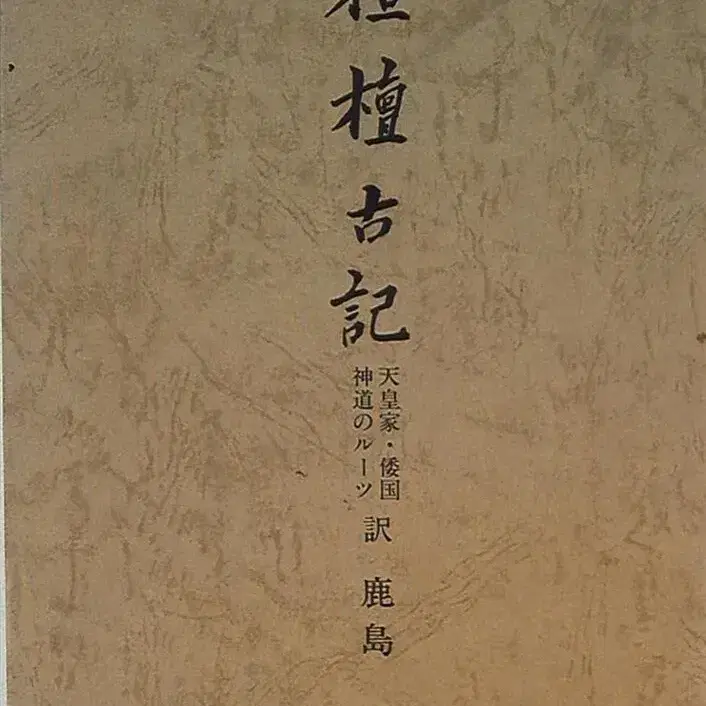 桓檀古記
天皇家・倭国
神道のルーツ
訳 鹿島